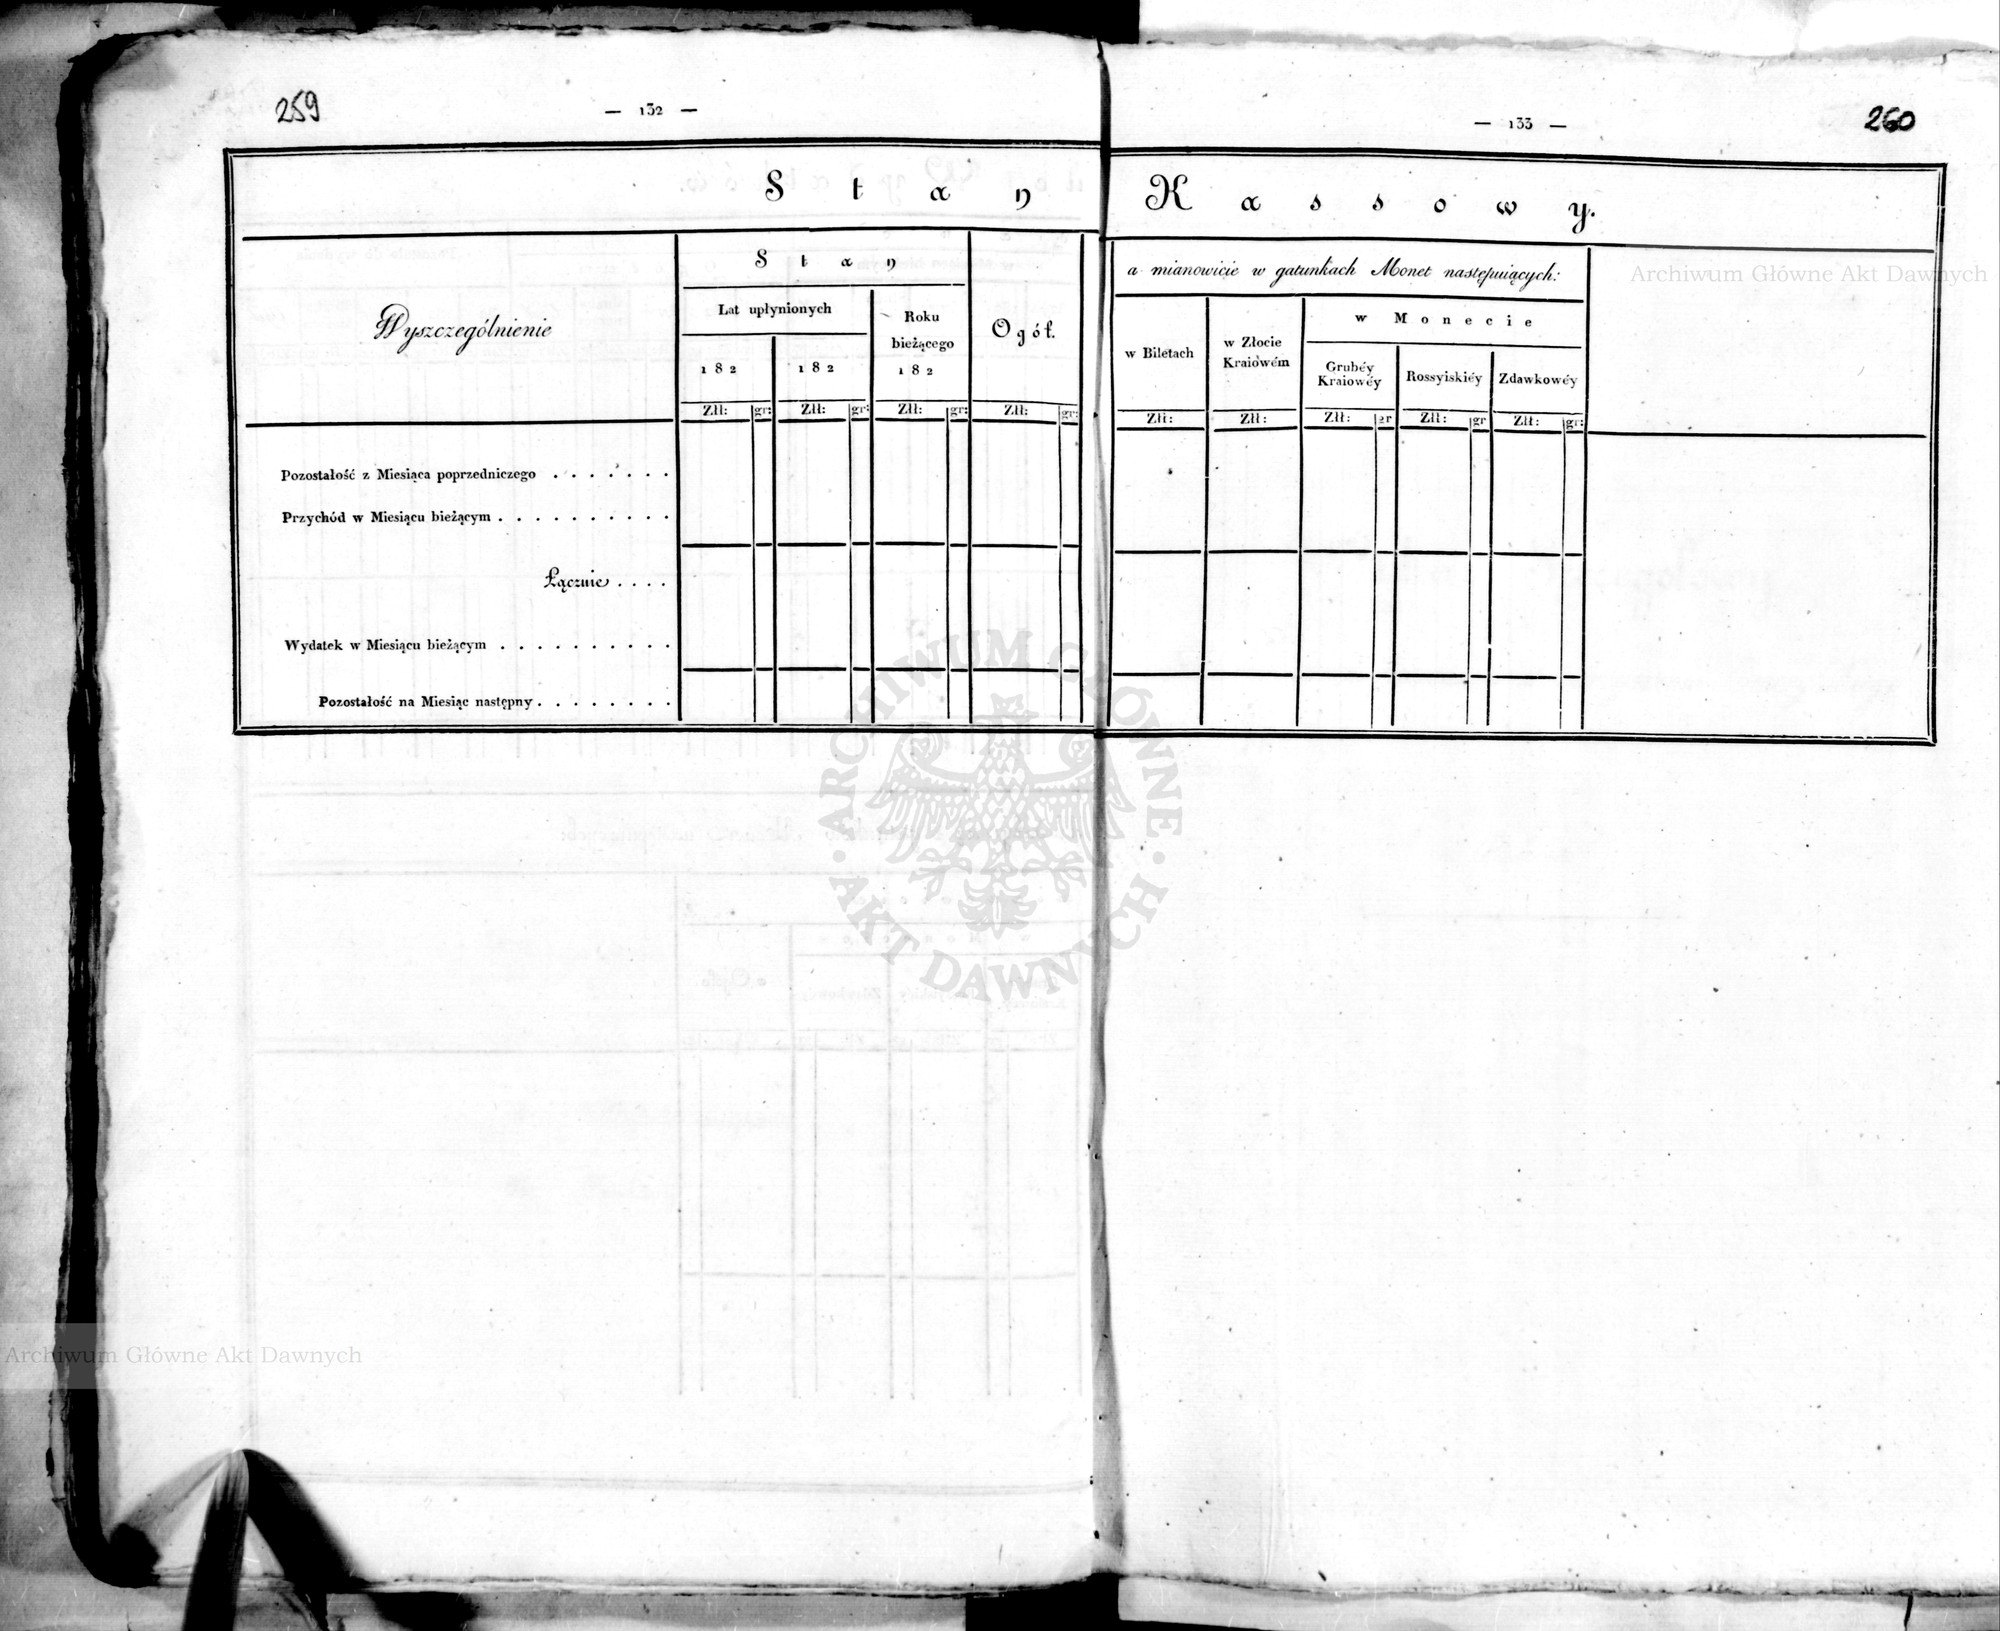 259
— 132 —
— 133 —
260
Stan Kassowy.
Wyszczególnienie
Stan
Lat upłynionych
182
182
Roku
bieżącego
182
Ogół.
a mianowicie w gatunkach Monet następuiących:
w Biletach
w Złocie
Kraiowém
w Monecie
Grubéy
Kraiowéy
Rossyiskiéy
Zdawkowéy
Złł: gr: Złł: gr: Złł: gr: Złł: gr:
Złł: Złł: Złł: gr Złł: gr Złł: gr:
Pozostałość z Miesiąca poprzedniczego . . . . . . .
Przychód w Miesiącu bieżącym . . . . . . . . . .
Łącznie . . . .
Wydatek w Miesiącu bieżącym . . . . . . . . . .
Pozostałość na Miesiąc następny . . . . . . . .
Archiwum Główne Akt Dawnych
ARCHIWUM GŁÓWNE · AKT DAWNYCH ·
Archiwum Główne Akt Dawnych